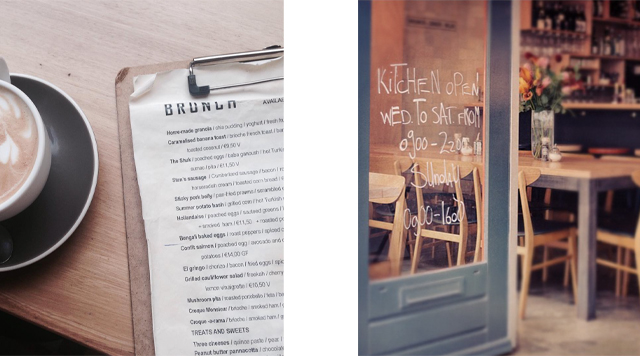 BRUNCH
Home-made granola / chia pudding / yoghurt / fresh
Caramelised banana toast / brioche french toast /
toasted coconut / €9,50 V
The Shuk / poached eggs / baba ganoush / hot
/ pita / €11,50 V
sausage / Cumberland sausage / bacon /
horseradish cream / toasted corn bread
Sticky pork belly / pan fried prawns / scrambled
Summer potato hash / grilled corn / hot
Hollandaise / poached eggs / sauteed greens
smoked ham / €11,50
Benga's baked eggs / roast peppers / spiced
Confit salmon / poached egg / avocado and
potatoes / €14,00 GF
El gringo / chorizo / bacon / fried eggs
Grilled cauliflower salad / freekeh / cherry
lemon vinaigrette / €10,50 V
Mushroom pita / roasted portobello / feta
Croque Monsieur / brioche / smoked ham
Croque -o-rama / brioche / smoked ham
TREATS AND SWEETS
Three cheeses / quince paste / pear
Peanut butter pannacotta / chocolate
KITCHEN OPEN
WED. TO SAT. FROM
0900-2200
SUNDAY
0900-1600